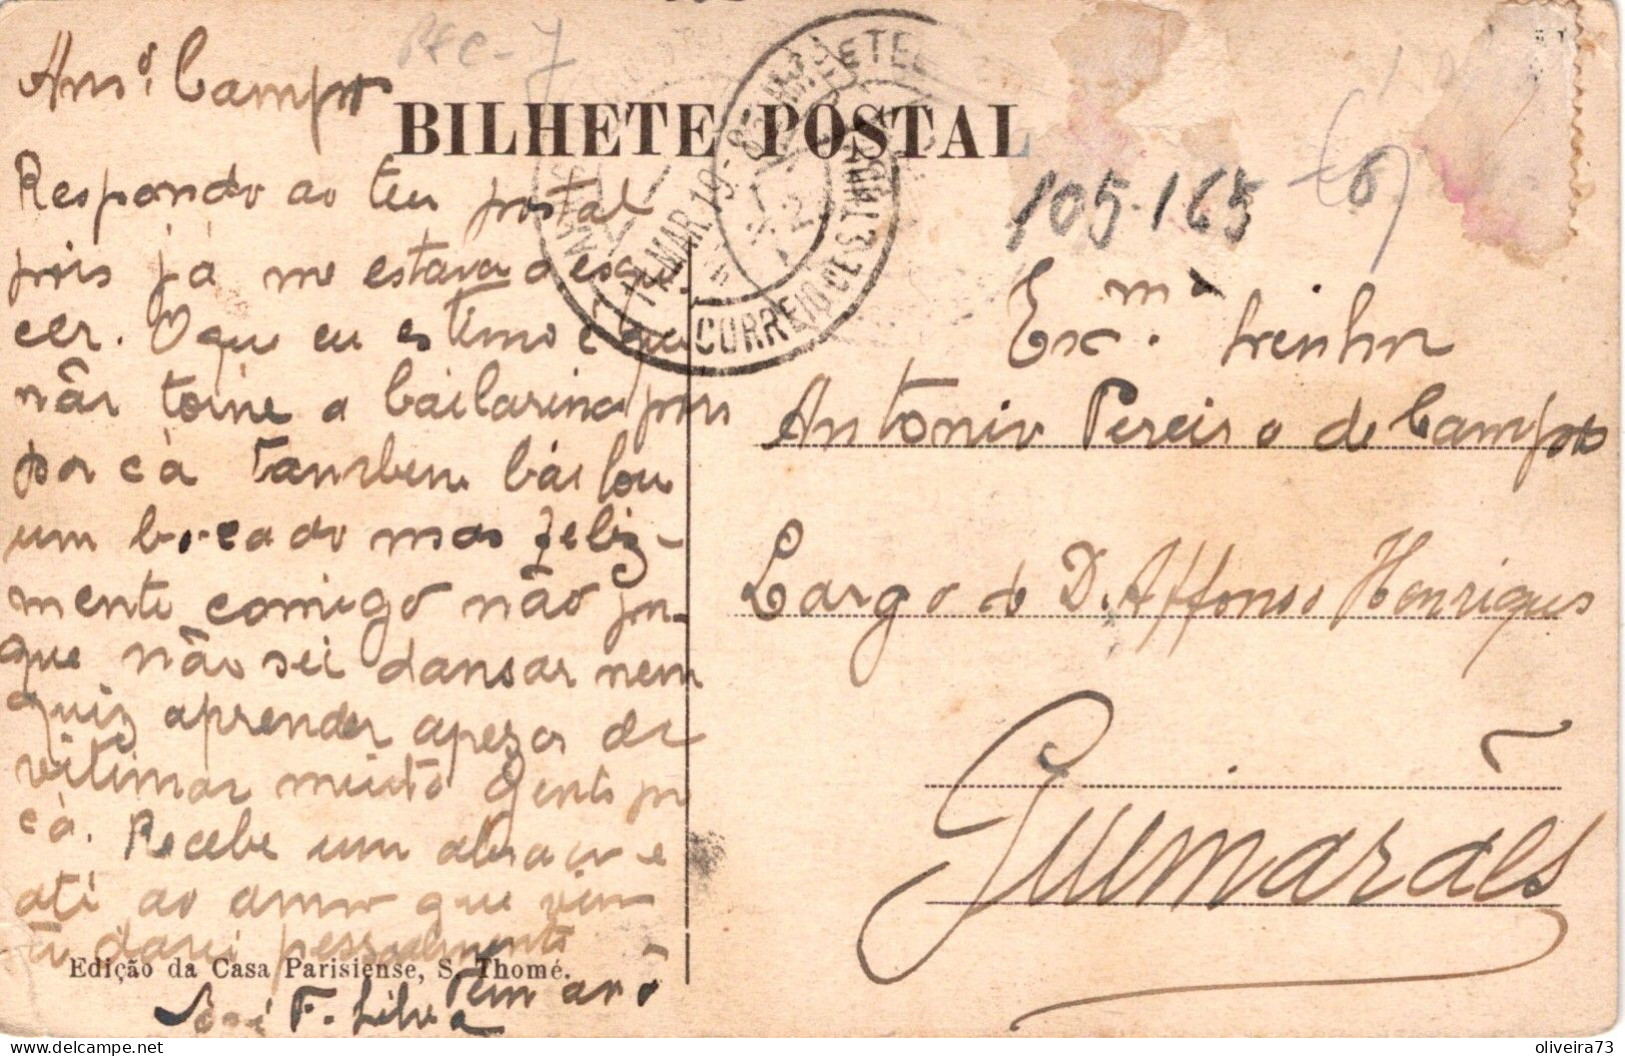 BILHETE POSTAL
105-165
Am.º Campos
Respondo ao teu postal
pois já me estava a esque
cer. O que eu estimo é que
não torne a bailarina pois
por cá tambem bailou
um bocado mas feliz-
mente comigo não por-
que não sei dansar nem
quiz aprender apezar de
vitimar muita gente por
cá. Recebe um abraço e
até ao anno que vem
tu darei pessoalmente
José F. Silva
Edição da Casa Parisiense, S. Thomé.
CORREIO DE S. THOMÉ
14. MAR. 19
Ex.mº Senhor
Antonio Pereira de Campos
Largo de D. Affonso Henriques
Guimarães
oliveira73